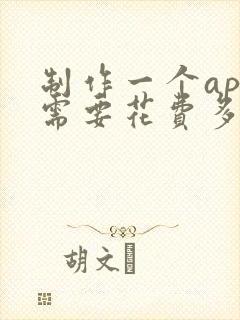 制作一个ap
需要花费多
胡文